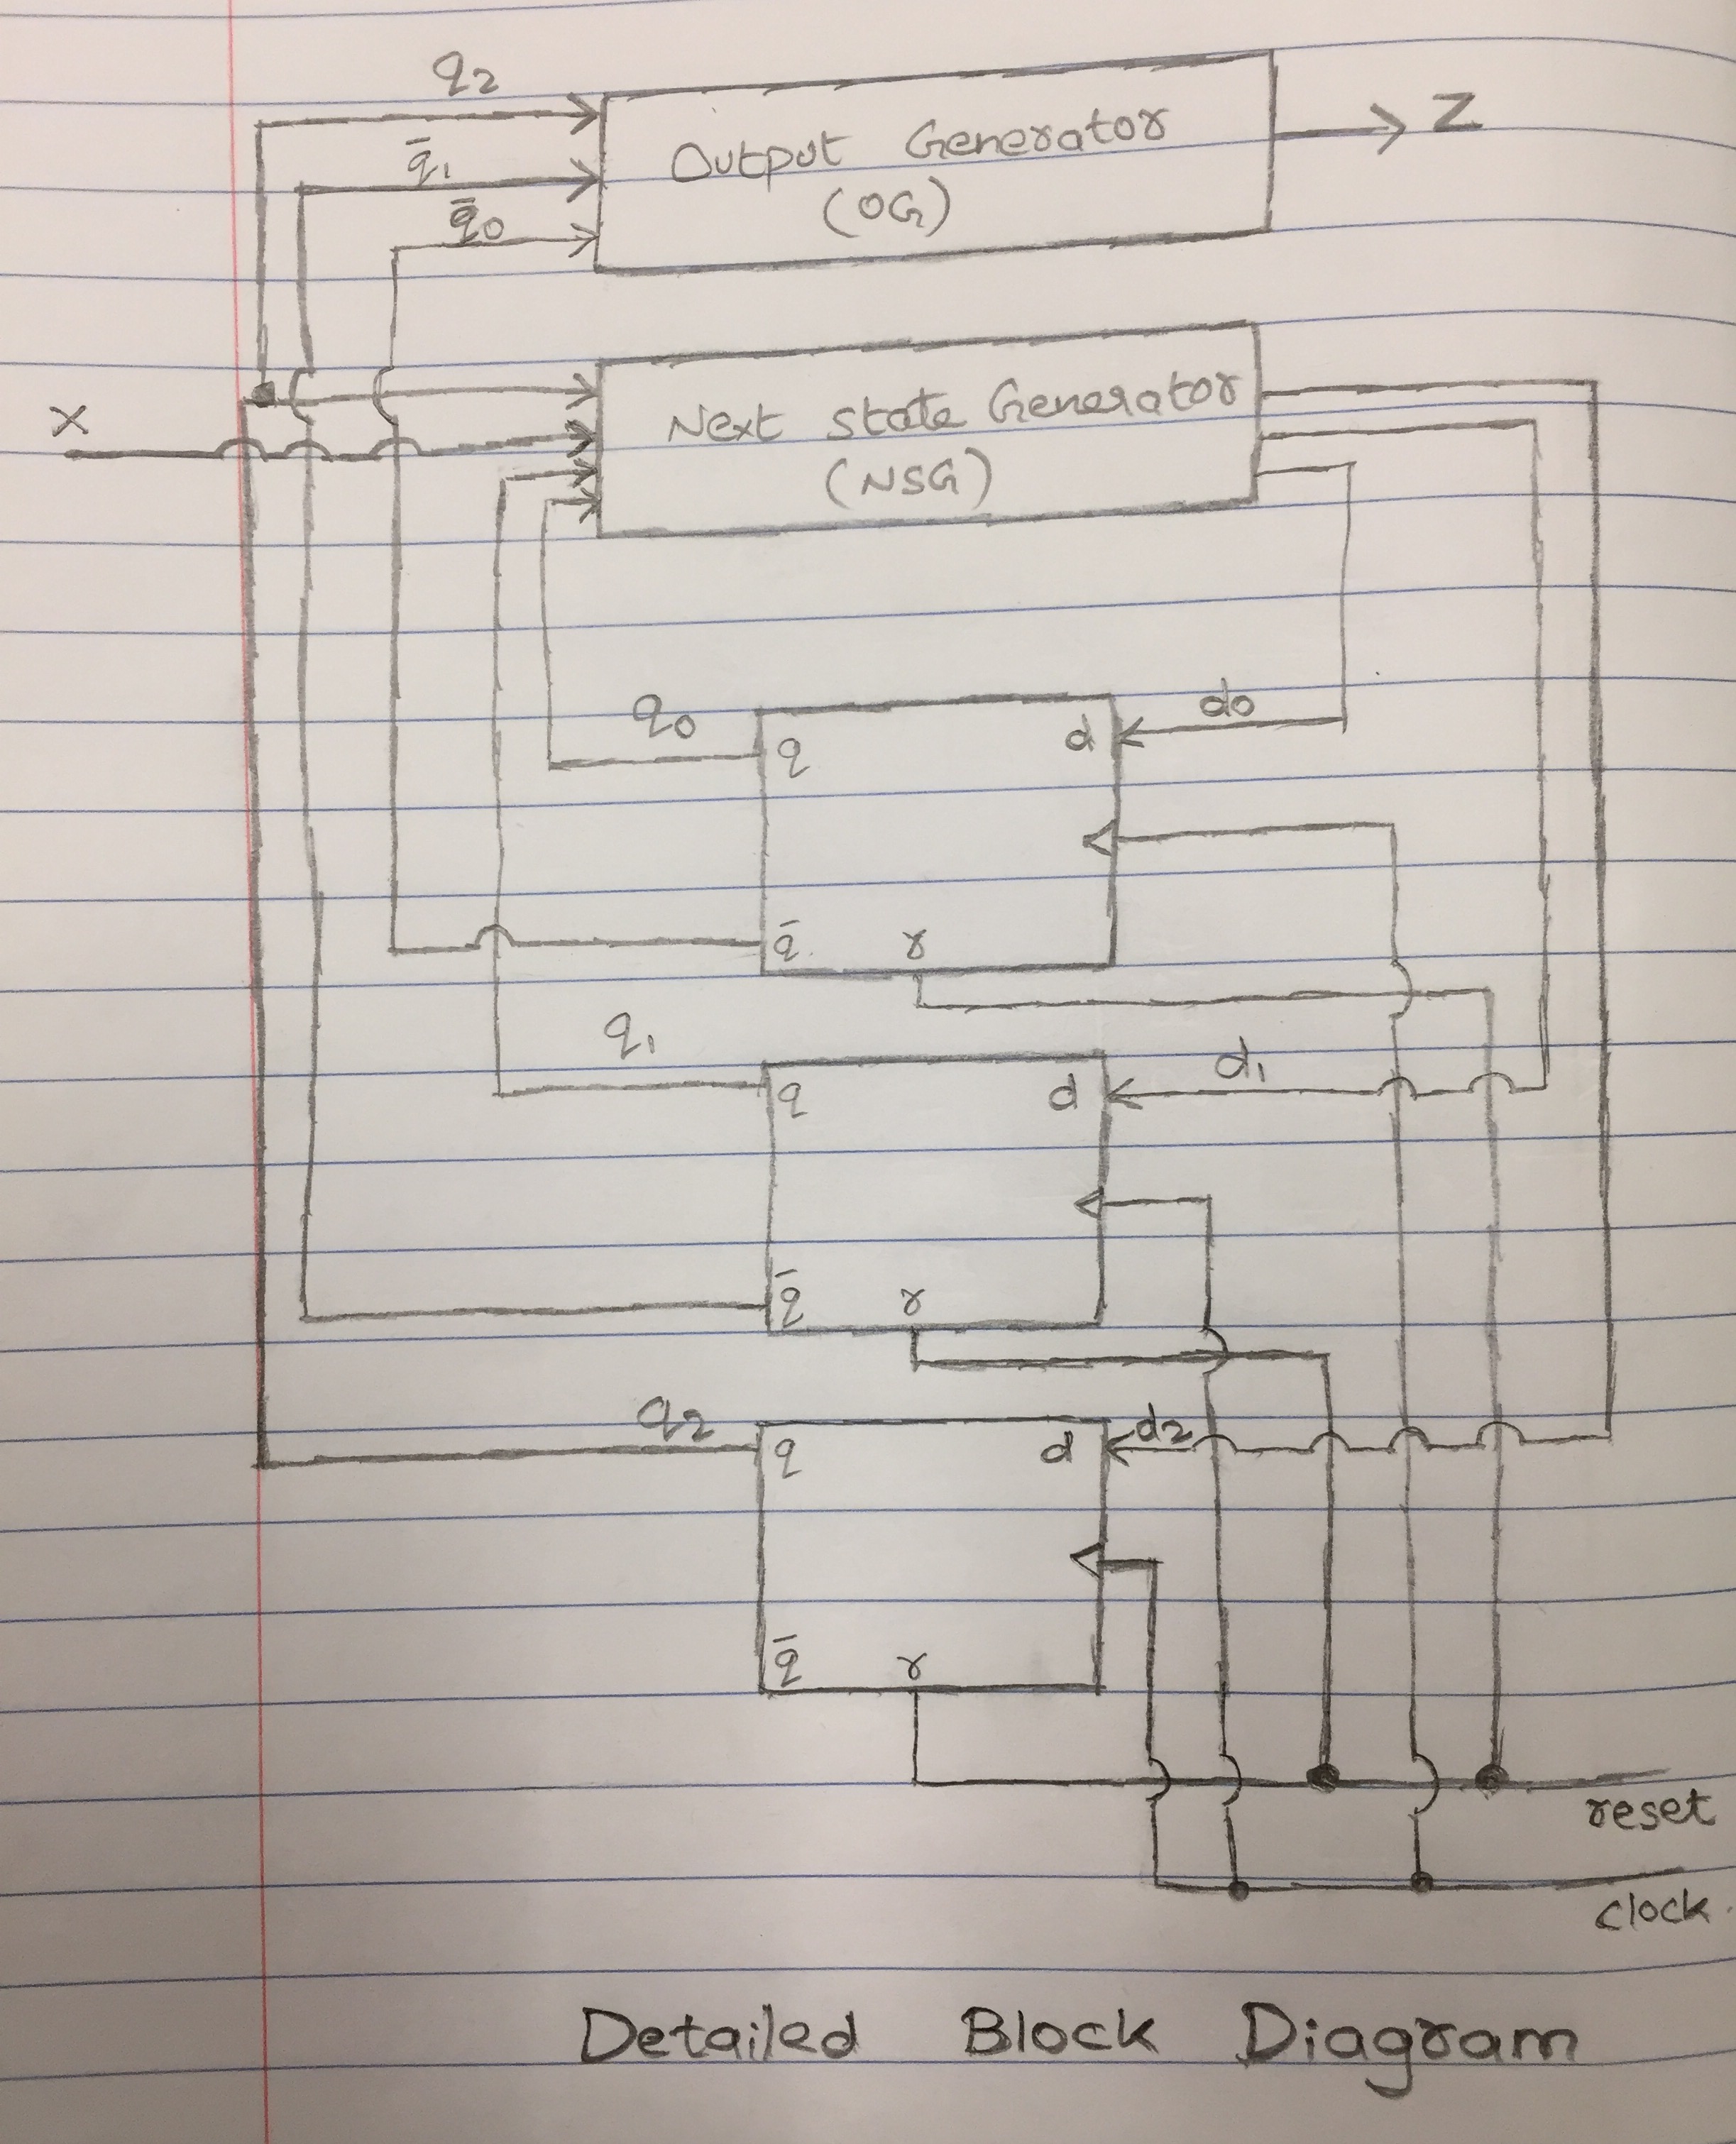 q2
q̄1
q̄0
Output Generator
(OG)
Z
X
Next state Generator
(NSG)
q0
d0
q
d
q̄
r
q1
d1
q
d
q̄
r
q2
d2
q
d
q̄
r
reset
clock
Detailed Block Diagram